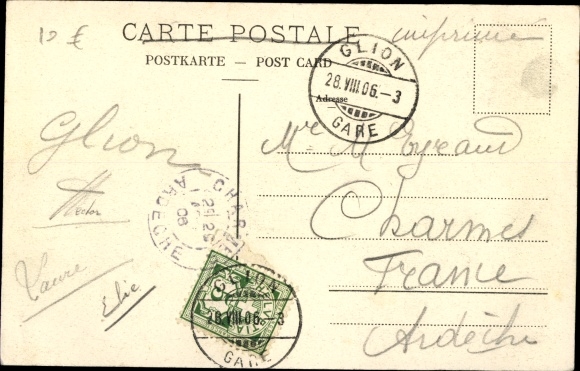 10 €
CARTE POSTALE
imprimé
POSTKARTE — POST CARD
GLION
28.VIII.06.–3
GARE
Adresse
Glion
Mr M Eyraud
CHAR
ARDECHE
06
Hector
Charmes
France
Laure
Elie
GLION
28.VIII.06. 3
GARE
HELVETIA
Ardèche